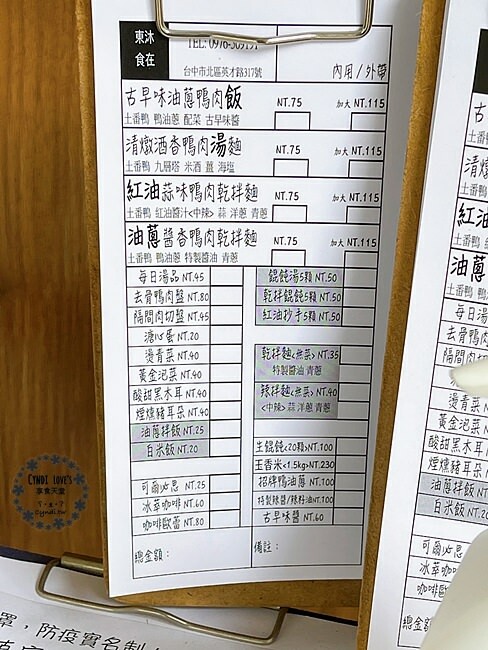 東沐
食在
TEL: 0976-509191
台中市北區英才路317號
內用/外帶
古早味油蔥鴨肉飯 NT.75 加大 NT.115
土番鴨 鴨油蔥 配菜 古早味醬
清燉酒香鴨肉湯麵 NT.75 加大 NT.115
土番鴨 九層塔 米酒 薑 海塩
紅油蒜味鴨肉乾拌麵 NT.75 加大 NT.115
土番鴨 紅油醬汁<中辣> 蒜 洋蔥 青蔥
油蔥醬香鴨肉乾拌麵 NT.75 加大 NT.115
土番鴨 鴨油蔥 特製醬油 青蔥
每日湯品 NT.45
去骨鴨肉盤 NT.80
隔間肉切盤 NT.45
溏心蛋 NT.20
燙青菜 NT.40
黃金泡菜 NT.40
酸甜黑木耳 NT.40
煙燻豬耳朵 NT.40
油蔥拌飯 NT.25
白米飯 NT.20
可爾必思 NT.25
冰萃咖啡 NT.60
咖啡歐蕾 NT.80
總金額:
餛飩湯5顆 NT.50
乾拌餛飩5顆 NT.50
紅油抄手5顆 NT.50
乾拌麵<無菜> NT.35
特製醬油 青蔥
辣拌麵<無菜> NT.40
<中辣> 蒜 洋蔥 青蔥
生餛飩<20顆> NT.100
玉香米<1.5kg> NT.230
招牌鴨油蔥 NT.100
特製辣醬/辣料油 NT.100
古早味醬 NT.60
備註:
CYNDI LOVE'S
享食天堂
cyndi.tw
古
土番鴨
清
土番鴨
紅
土番鴨
油蔥
土番鴨 鴨
每日湯
去骨鴨
隔間肉切
溏心
燙青菜
黃金泡
酸甜黑木
煙燻豬耳
油蔥拌飯
白米飯 NT.20
可爾必思
冰萃咖
咖啡歐
總金額
罩,防疫實名制